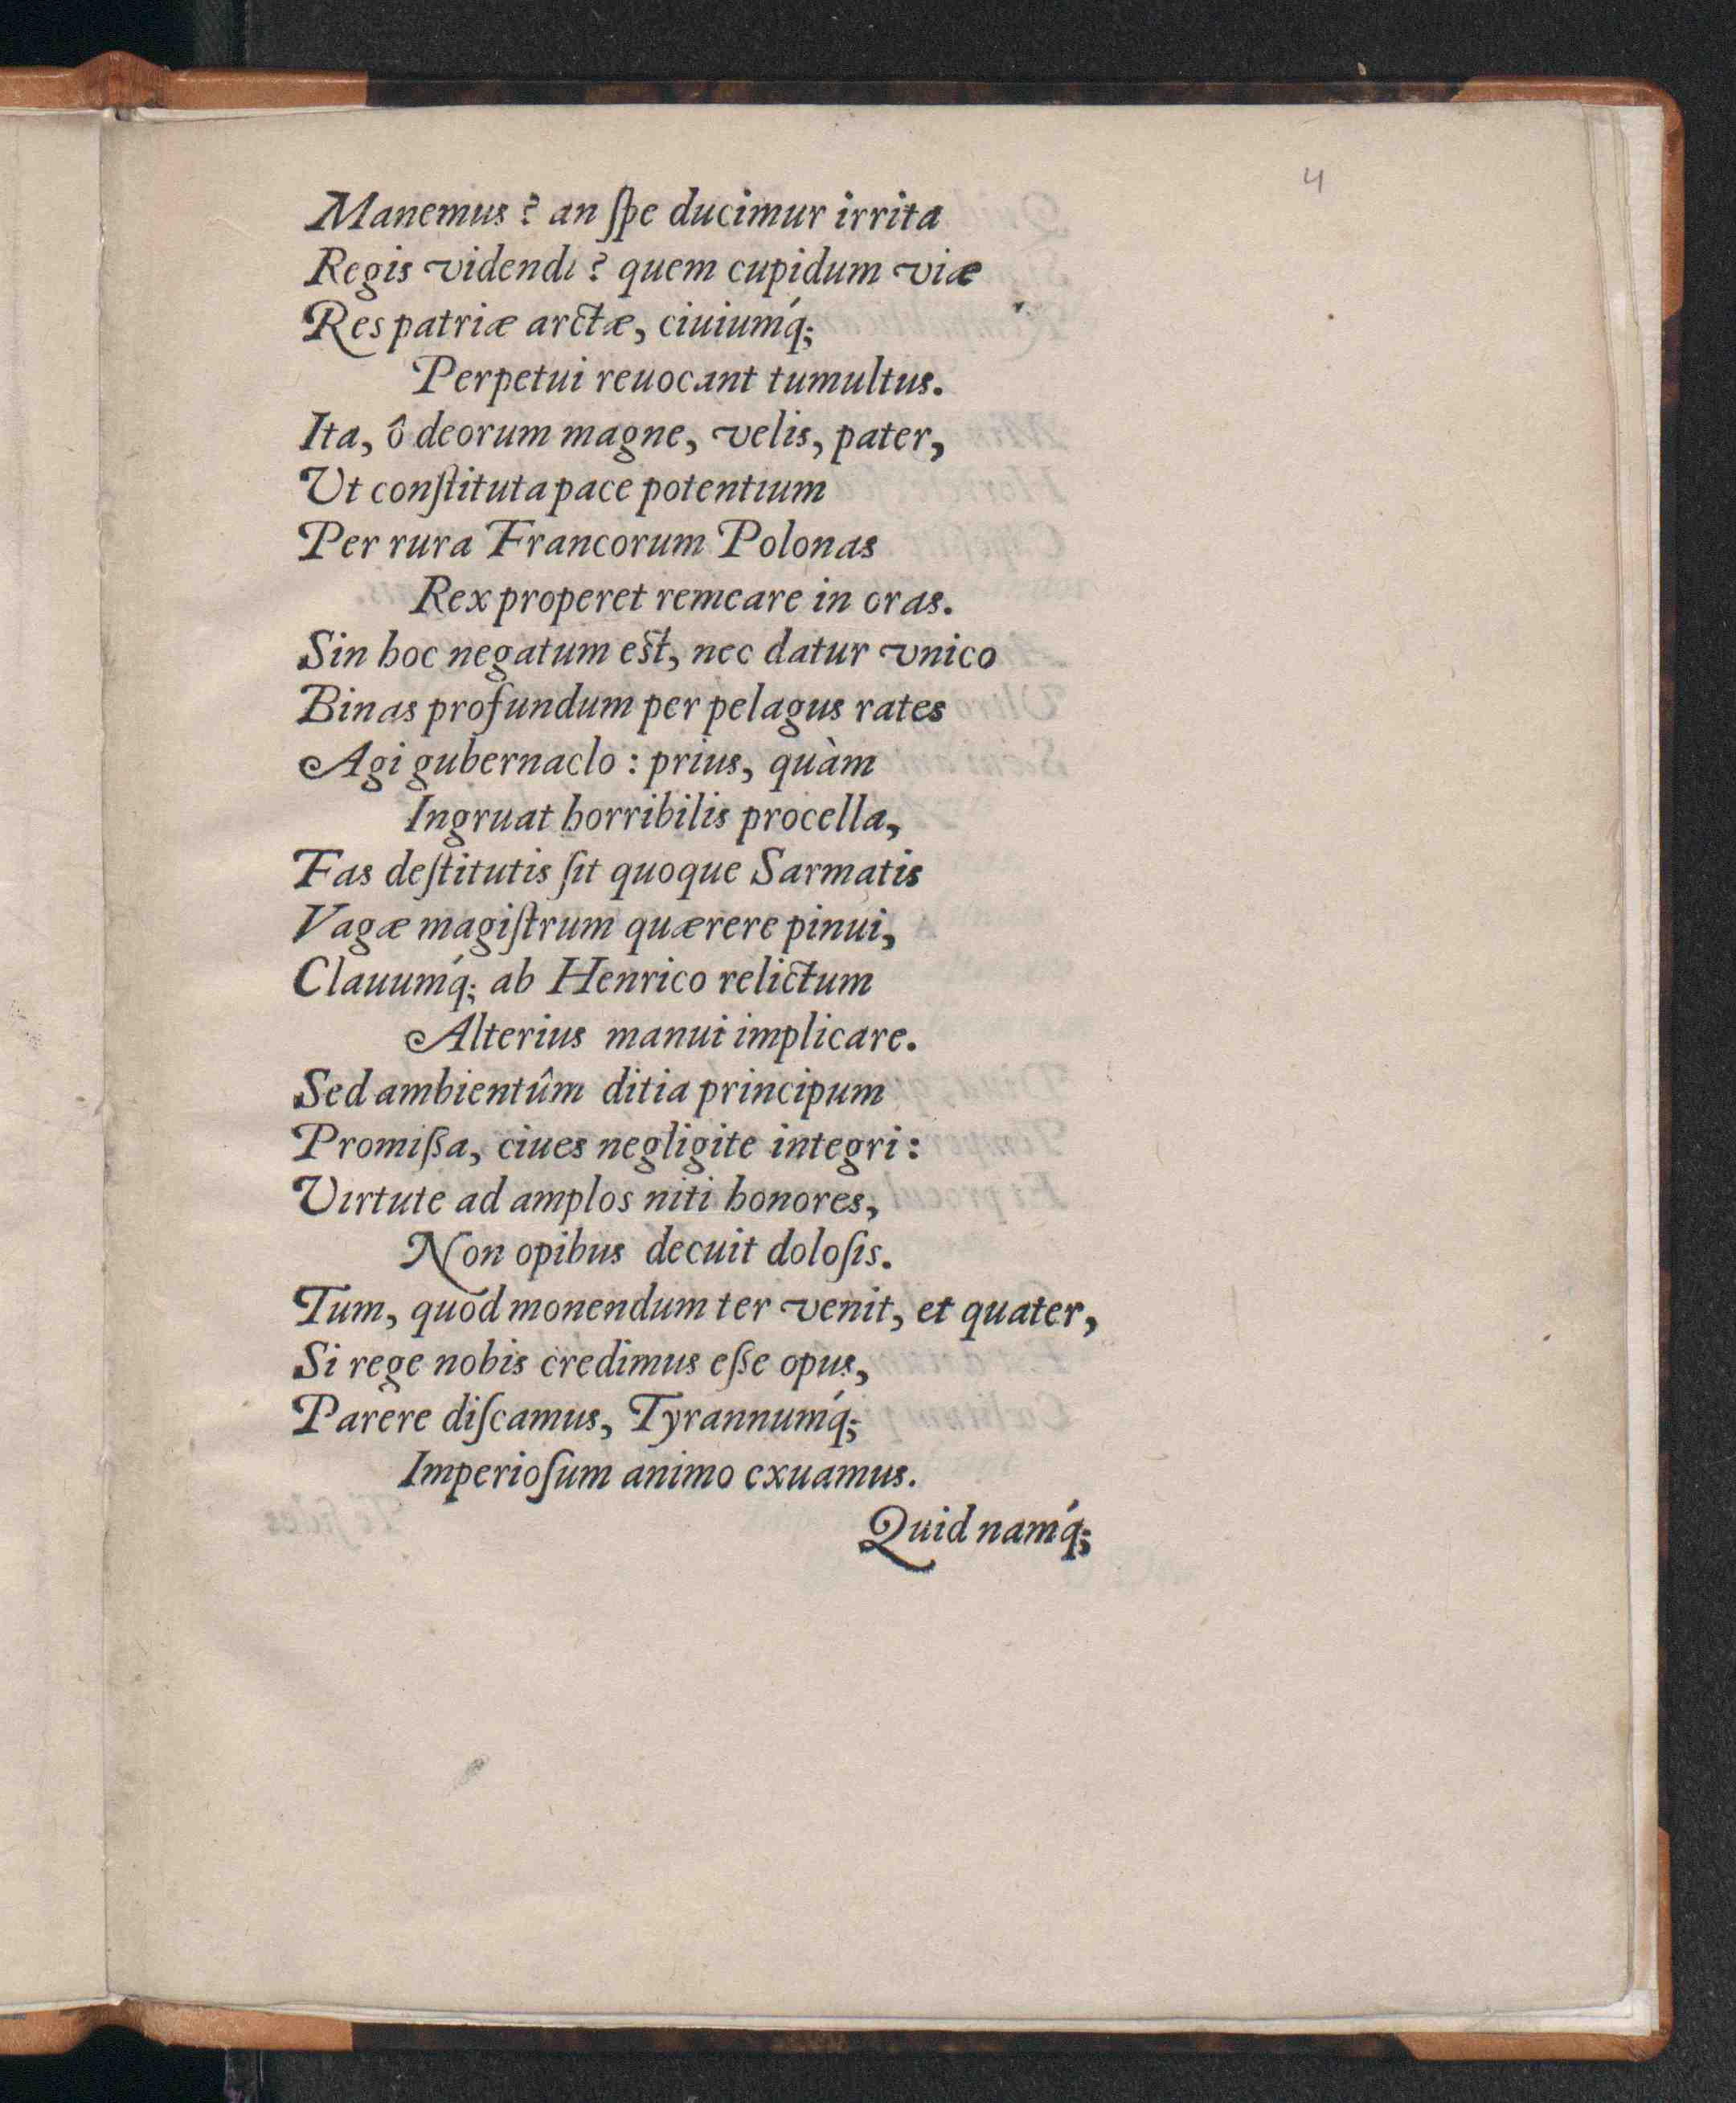 4
Manemus? an ſpe ducimur irrita
Regis videndi? quem cupidum viæ
Res patriæ arctæ, ciuiumq́;
Perpetui reuocant tumultus.
Ita, ô deorum magne, velis, pater,
Vt conſtituta pace potentium
Per rura Francorum Polonas
Rex properet remeare in oras.
Sin hoc negatum est, nec datur vnico
Binas profundum per pelagus rates
Agi gubernaclo: prius, quàm
Ingruat horribilis procella,
Fas deſtitutis ſit quoque Sarmatis
Vagæ magiſtrum quærere pinui,
Clauumq́; ab Henrico relictum
Alterius manui implicare.
Sed ambientûm ditia principum
Promiſſa, ciues negligite integri:
Virtute ad amplos niti honores,
Non opibus decuit doloſis.
Tum, quod monendum ter venit, et quater,
Si rege nobis credimus eſſe opus,
Parere diſcamus, Tyrannumq́;
Imperioſum animo exuamus.
Quid namq́;